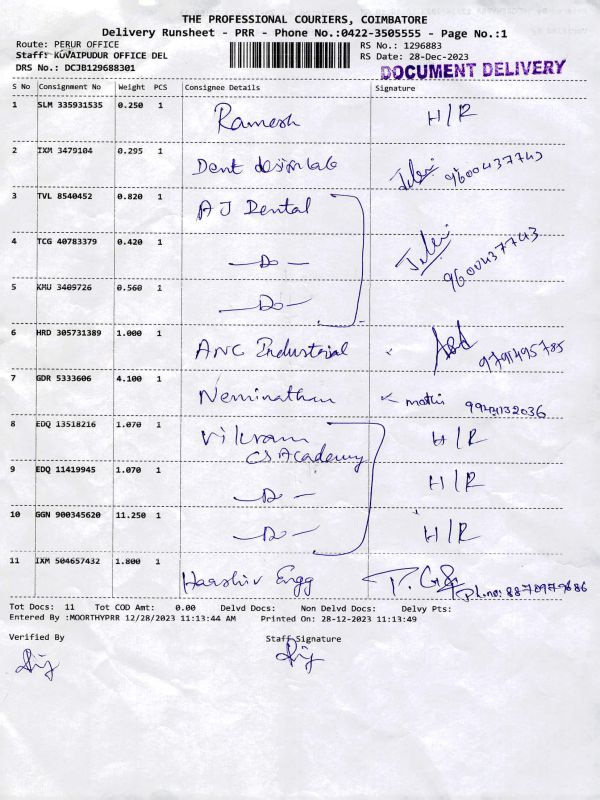 THE PROFESSIONAL COURIERS, COIMBATORE
Delivery Runsheet - PRR - Phone No.:0422-3505555 - Page No.:1
Route: PERUR OFFICE
RS No.: 1296883
Staff: KUVAIPUDUR OFFICE DEL
RS Date: 28-Dec-2023
DRS No.: DCJB129688301
DOCUMENT DELIVERY
S No Consignment No Weight PCS Consignee Details Signature
1 SLM 335931535 0.250 1 Ramesh H/R
2 IXM 3479104 0.295 1 Dent desin lab 9600437743
3 TVL 8540452 0.820 1 AJ Dental
4 TCG 40783379 0.420 1 -Do- 9600437743
5 KMU 3409726 0.560 1 -Do-
6 HRD 305731389 1.000 1 ANC Industrial 9791495785
7 GDR 5333606 4.100 1 Neminathan mathi 9944132036
8 EDQ 13518216 1.070 1 Vikram H/R
CS Academy
9 EDQ 11419945 1.070 1 -Do- H/R
10 GGN 900345620 11.250 1 -Do- H/R
11 IXM 504657432 1.800 1 Harshiv Engg Ph.no: 8870979686
Tot Docs: 11 Tot COD Amt: 0.00 Delvd Docs: Non Delvd Docs: Delvy Pts:
Entered By :MOORTHYPRR 12/28/2023 11:13:44 AM Printed On: 28-12-2023 11:13:49
Verified By Staff Signature